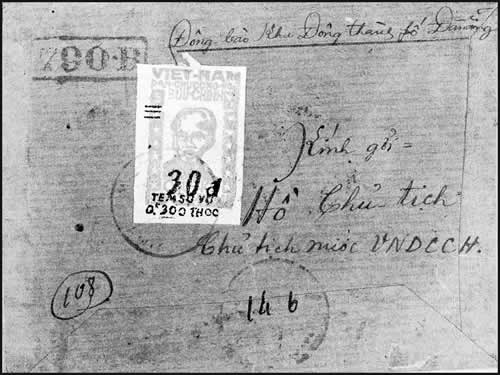 Đồng bào Khu Đông thành fố Đà nẵng
790-B
VIỆT-NAM
30đ
TEM SỰ VỤ
0K300 THOC
Kính gởi =
Hồ Chủ tịch
Chủ tịch nước VNDCCH.
108
14 6